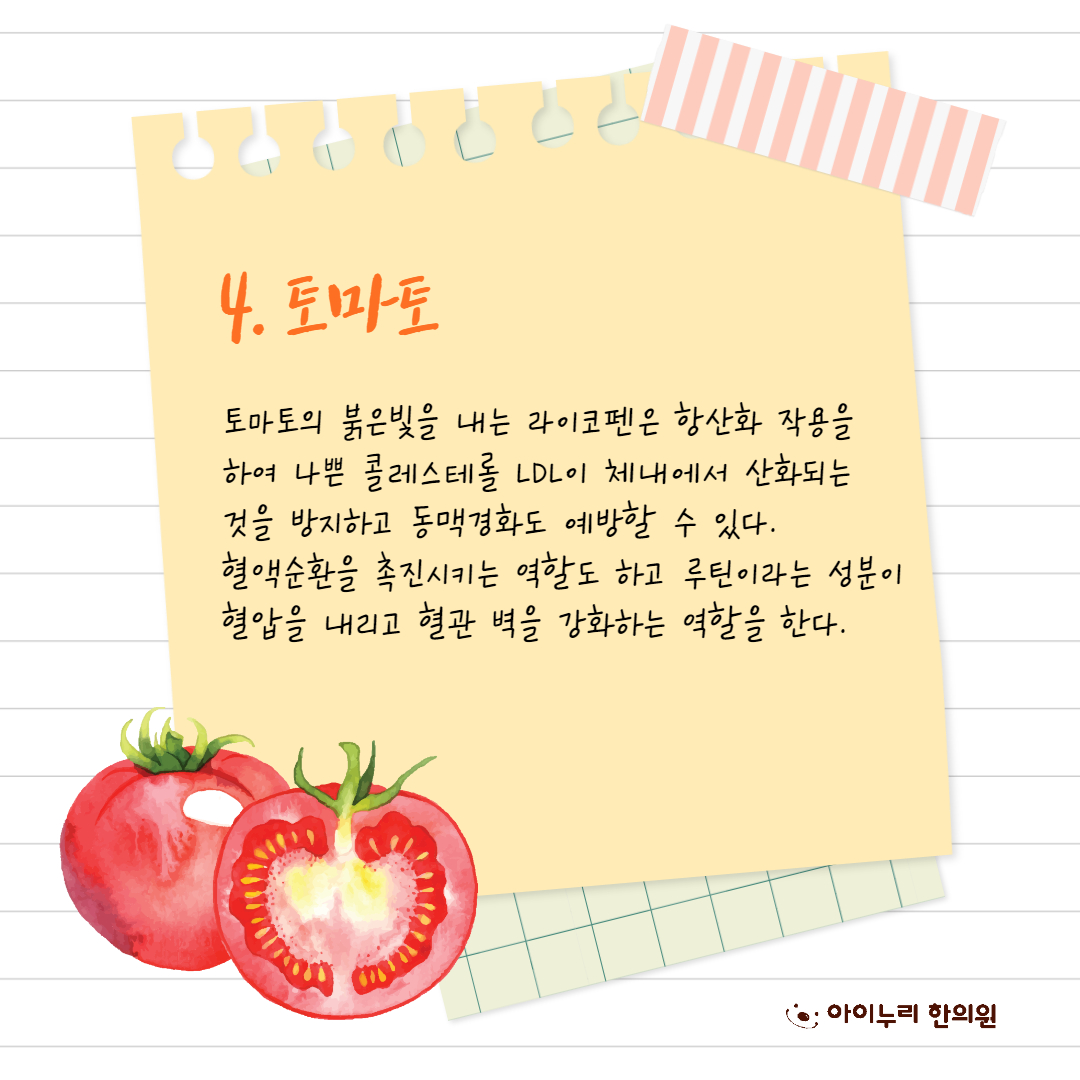 4. 토마토
토마토의 붉은빛을 내는 라이코펜은 항산화 작용을
하여 나쁜 콜레스테롤 LDL이 체내에서 산화되는
것을 방지하고 동맥경화도 예방할 수 있다.
혈액순환을 촉진시키는 역할도 하고 루틴이라는 성분이
혈압을 내리고 혈관 벽을 강화하는 역할을 한다.
아이누리 한의원